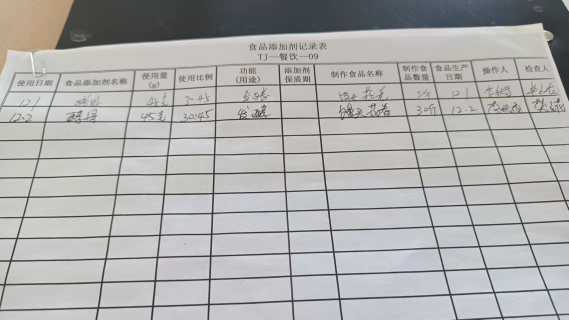 食品添加剂记录表
TJ—餐饮—09
使用日期 食品添加剂名称 使用量(g) 使用比例 功能(用途) 添加剂保质期 制作食品名称 制作食品数量 食品生产日期 操作人 检查人
12.1 45克 发酵 馒头 花卷 12.1
12.2 酵母 45克 30:45 发酵 馒头 花卷 30斤 12.2